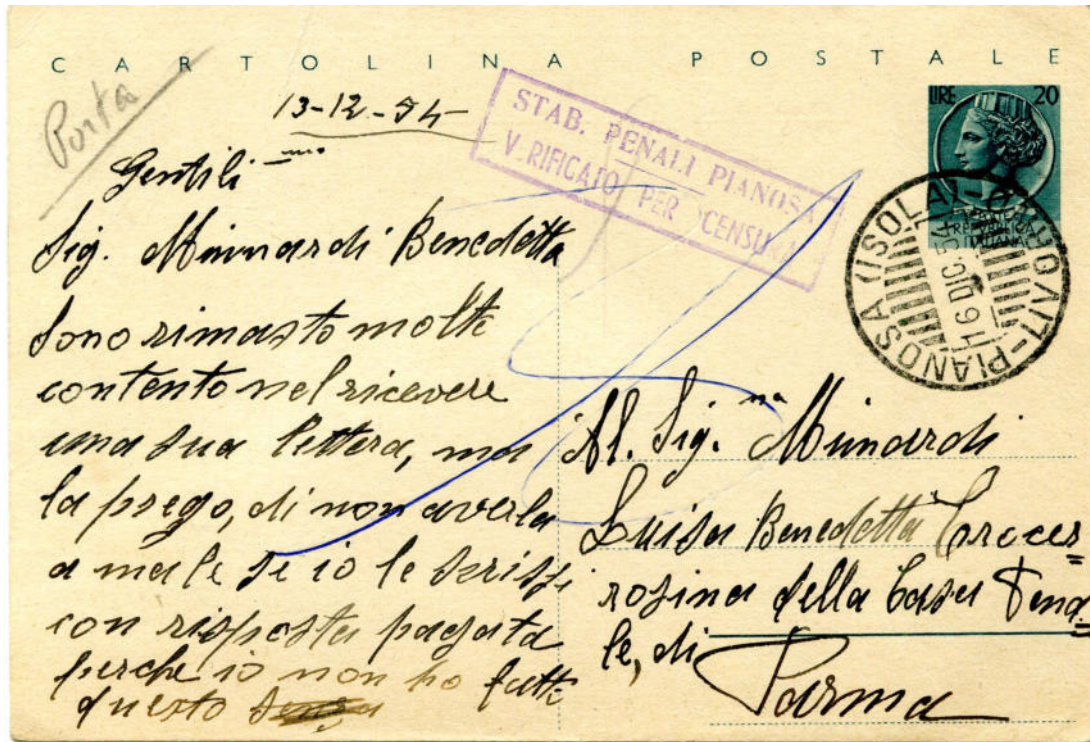 CARTOLINA POSTALE
Porta
13-12-54
STAB. PENALI PIANOSA
V RIFICATO PER CENSURA
LIRE 20
REPUBBLICA
ITALIANA
PIANOSA (ISOLA)-(LIVORNO)
16 DIC. 54
Gentili mo
Sig. Minardi Benedetta
Sono rimasto molto
contento nel ricevere
una sua lettera, ma
la prego, di non averla
a male se io le scrissi
con risposta pagata
perche io non ho fatto
questo
Al. Sig.na Minardi
Luisa Benedetta Croces
rosina della Casa Pena
le, di
Parma